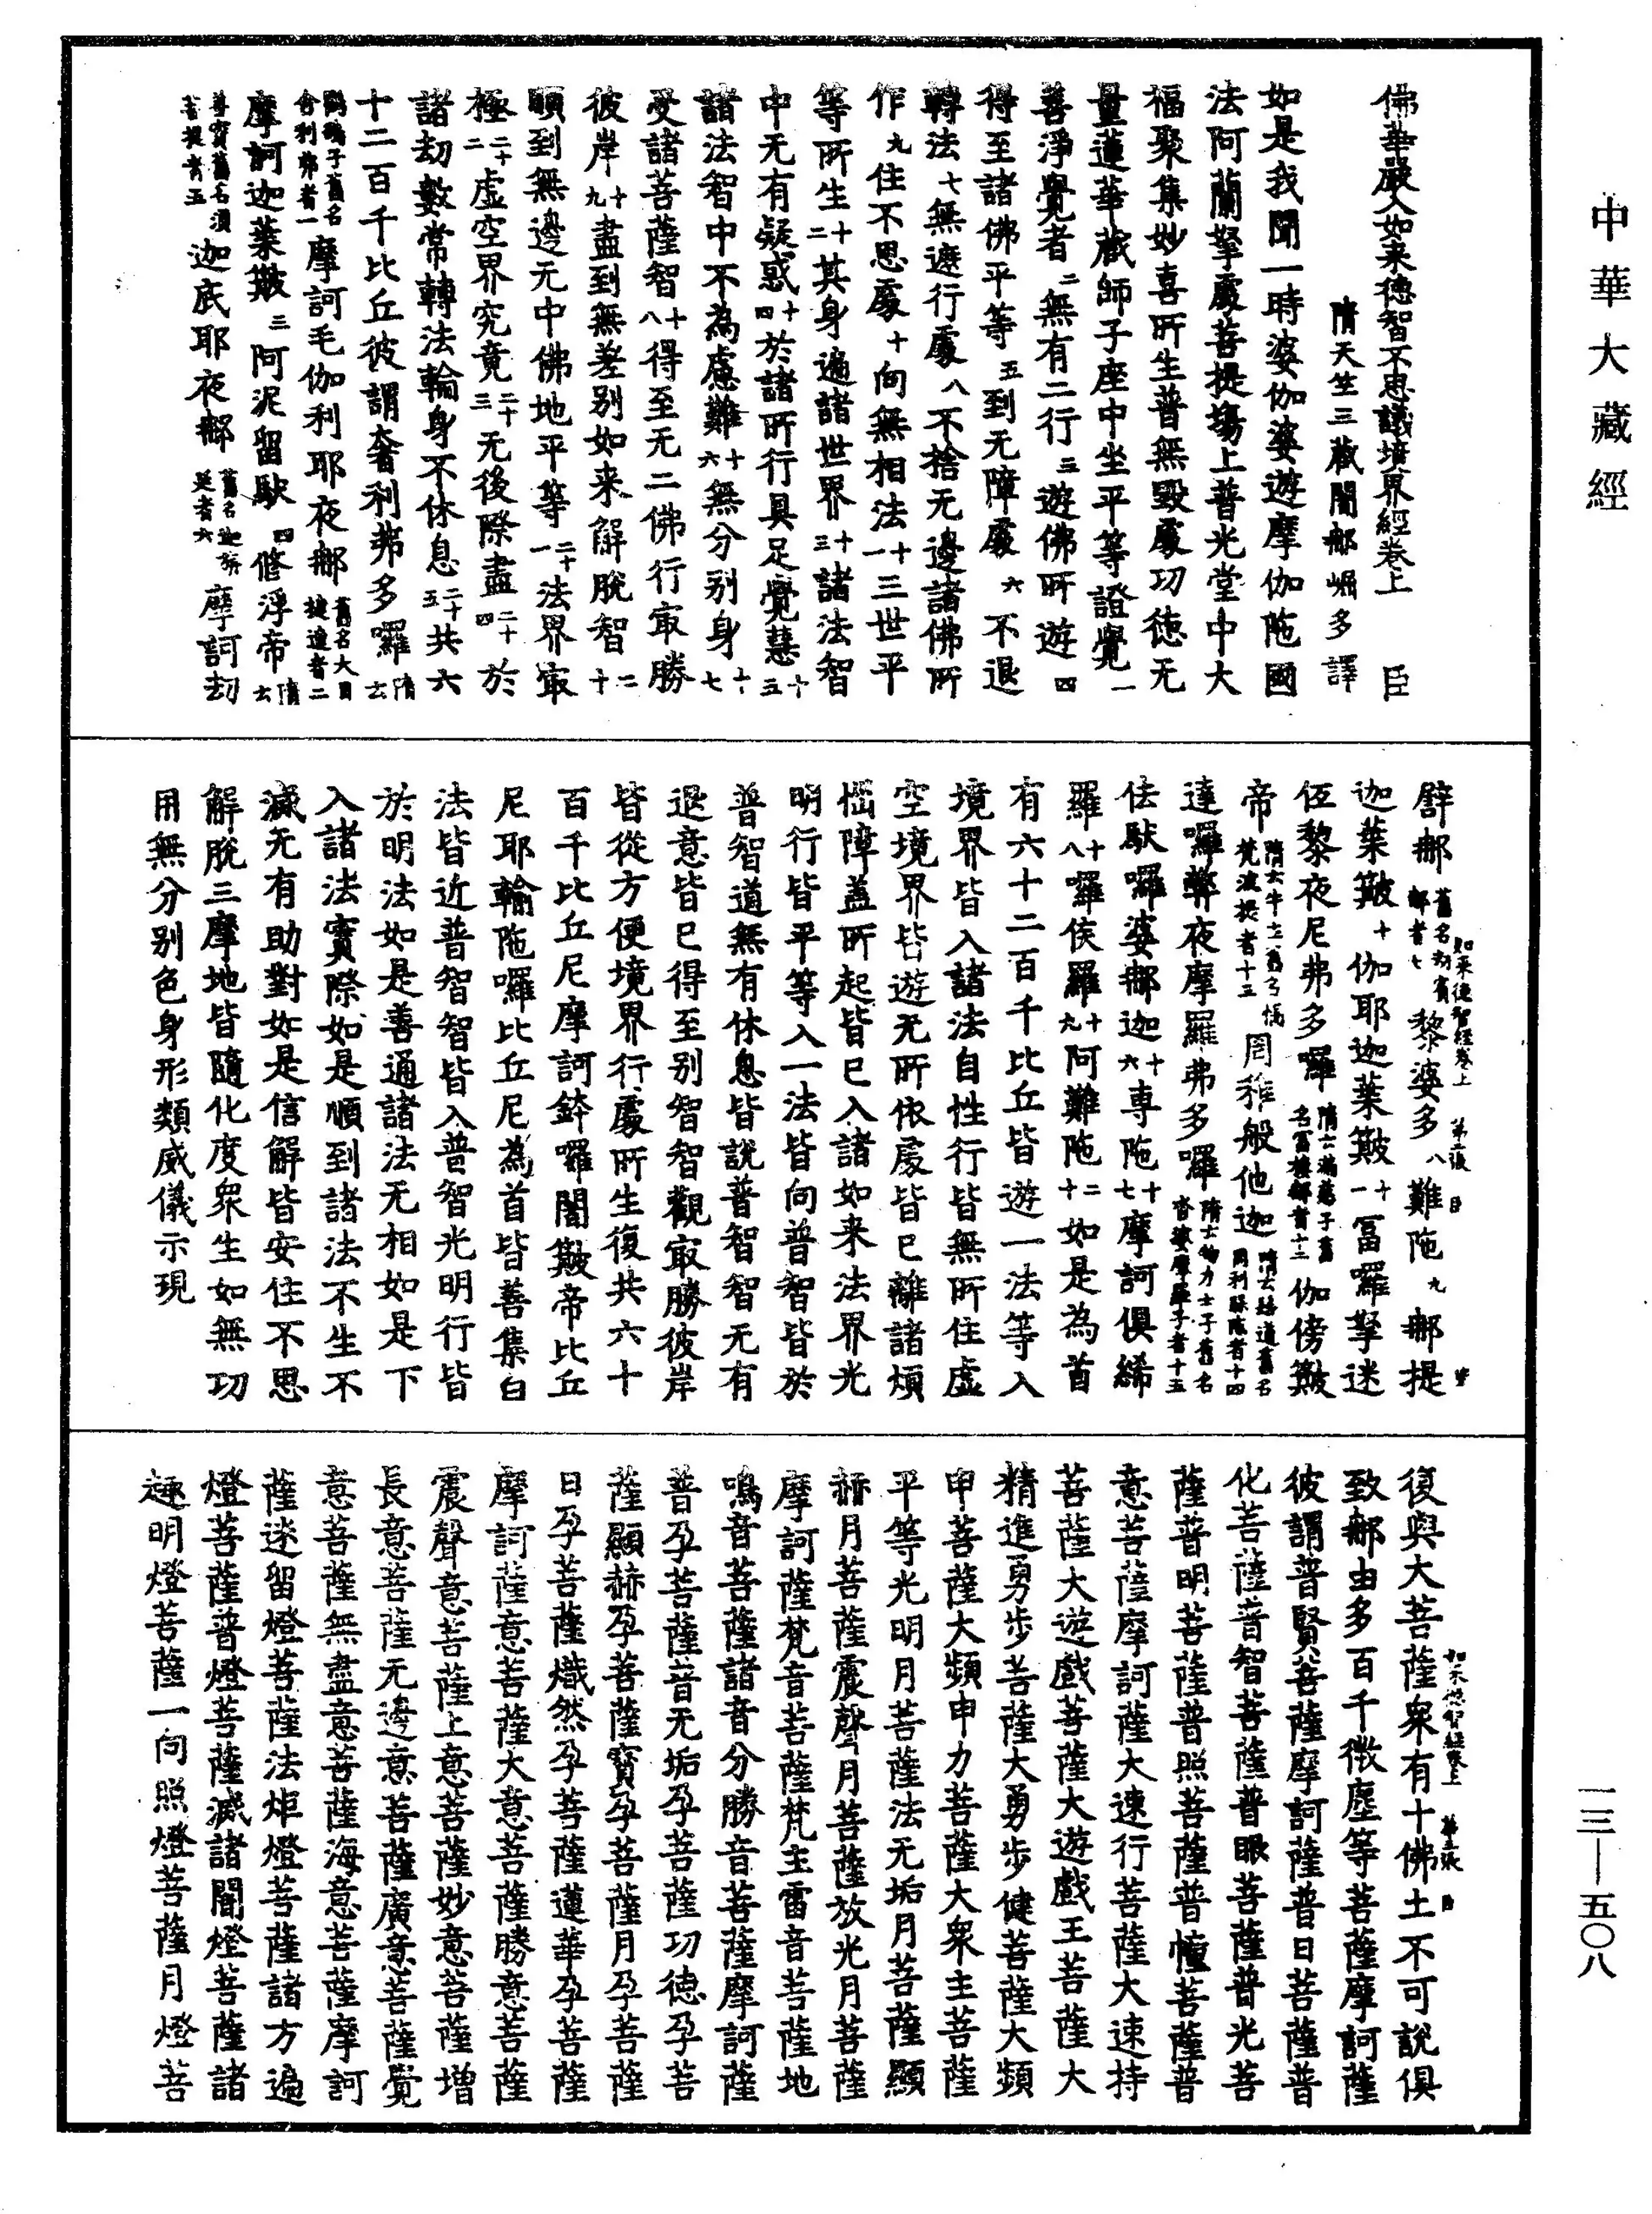 中華大藏經
佛華嚴入如来德智不思議境界經卷上　臣
隋天竺三藏闍那崛多譯
如是我聞一時婆伽婆遊摩伽陁國
法阿蘭拏處菩提場上普光堂中大
福聚集妙喜所生普無毀處功徳无
量蓮華藏師子座中坐平等證覺一
善淨覺者二無有二行三遊佛所遊四
得至諸佛平等五到无障處六不退
轉法七無遮行處八不捨无邊諸佛所
作九住不思處十向無相法十一三世平
等所生十二其身遍諸世界十三諸法智
中无有疑惑十四於諸所行具足覺慧十五
諸法智中不為慮難十六無分别身十七
受諸菩薩智十八得至无二佛行㝡勝
彼岸十九盡到無差别如来解脫智二十
順到無邊无中佛地平等二十一法界㝡
極二十二虛空界究竟二十三无後際盡二十四於
諸劫數常轉法輪身不休息二十五共六
十二百千比丘彼謂奢利弗多囉隋云
鸜鵒子舊名舍利弗者一摩訶毛伽利耶夜那舊名大目揵連者二
摩訶迦葉簸三阿泥留馱四修浮帝隋云
善實舊名須菩提者五迦底耶夜那舊名迦旃延者六摩訶劫
如来德智經卷上　第二張
譬那舊名劫賓那者七黎婆多八難陁九那提
迦葉簸十伽耶迦葉簸十一冨囉拏迷
低黎夜尼弗多囉隋云滿慈子舊名富樓那者十二伽傍簸
帝隋云牛主舊名憍梵波提者十三周稚般他迦隋云路道舊名周利槃陁者十四
達囉弊夜摩羅弗多囉隋云物力士子舊名沓婆摩羅子者十五
佉馱囉婆那迦十六専陁十七摩訶俱絺
羅十八囉侯羅十九阿難陁二十如是為首
有六十二百千比丘皆遊一法等入
境界皆入諸法自性行皆無所住虛
空境界皆遊无所依處皆已離諸煩
惱障蓋所起皆已入諸如来法界光
明行皆平等入一法皆向普智皆於
普智道無有休息皆說普智智无有
退意皆已得至别智智觀㝡勝彼岸
皆從方便境界行處所生復共六十
百千比丘尼摩訶鉢囉闍簸帝比丘
尼耶輸陁囉比丘尼為首皆善集白
法皆近普智智皆入普智光明行皆
於明法如是善通諸法无相如是下
入諸法實際如是順到諸法不生不
滅无有助對如是信解皆安住不思
解脫三摩地皆隨化度衆生如無功
用無分别色身形類威儀示現
如来德智經卷上　第三張
復與大菩薩衆有十佛土不可說俱
致那由多百千微塵等菩薩摩訶薩
彼謂普賢菩薩摩訶薩普日菩薩普
化菩薩普智菩薩普眼菩薩普光菩
薩普明菩薩普照菩薩普幢菩薩普
意菩薩摩訶薩大速行菩薩大速持
菩薩大遊戲菩薩大遊戲王菩薩大
精進勇步菩薩大勇步健菩薩大頻
申菩薩大頻申力菩薩大衆主菩薩
平等光明月菩薩法无垢月菩薩顯
赫月菩薩震聲月菩薩放光月菩薩
摩訶薩梵音菩薩梵主雷音菩薩地
鳴音菩薩諸音分勝音菩薩摩訶薩
普孕菩薩普无垢孕菩薩功德孕菩
薩顯赫孕菩薩寶孕菩薩月孕菩薩
日孕菩薩熾然孕菩薩蓮華孕菩薩
摩訶薩意菩薩大意菩薩勝意菩薩
震聲意菩薩上意菩薩妙意菩薩増
長意菩薩无邊意菩薩廣意菩薩覺
意菩薩無盡意菩薩海意菩薩摩訶
薩迷留燈菩薩法炬燈菩薩諸方遍
燈菩薩普燈菩薩滅諸闇燈菩薩諸
趣明燈菩薩一向照燈菩薩月燈菩
一三—五〇八